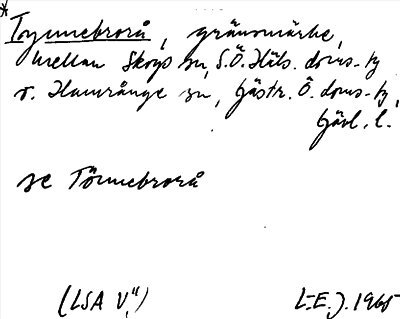 * Tynnebrorå, gränsmärke,
mellan Skogs sn, S.Ö. Häls. doms-tg
o. Hamrånge sn, Gästr. Ö. doms-tg,
Gävl. l.
se Tönnebrorå
(LSA V,") L-E.J. 1965